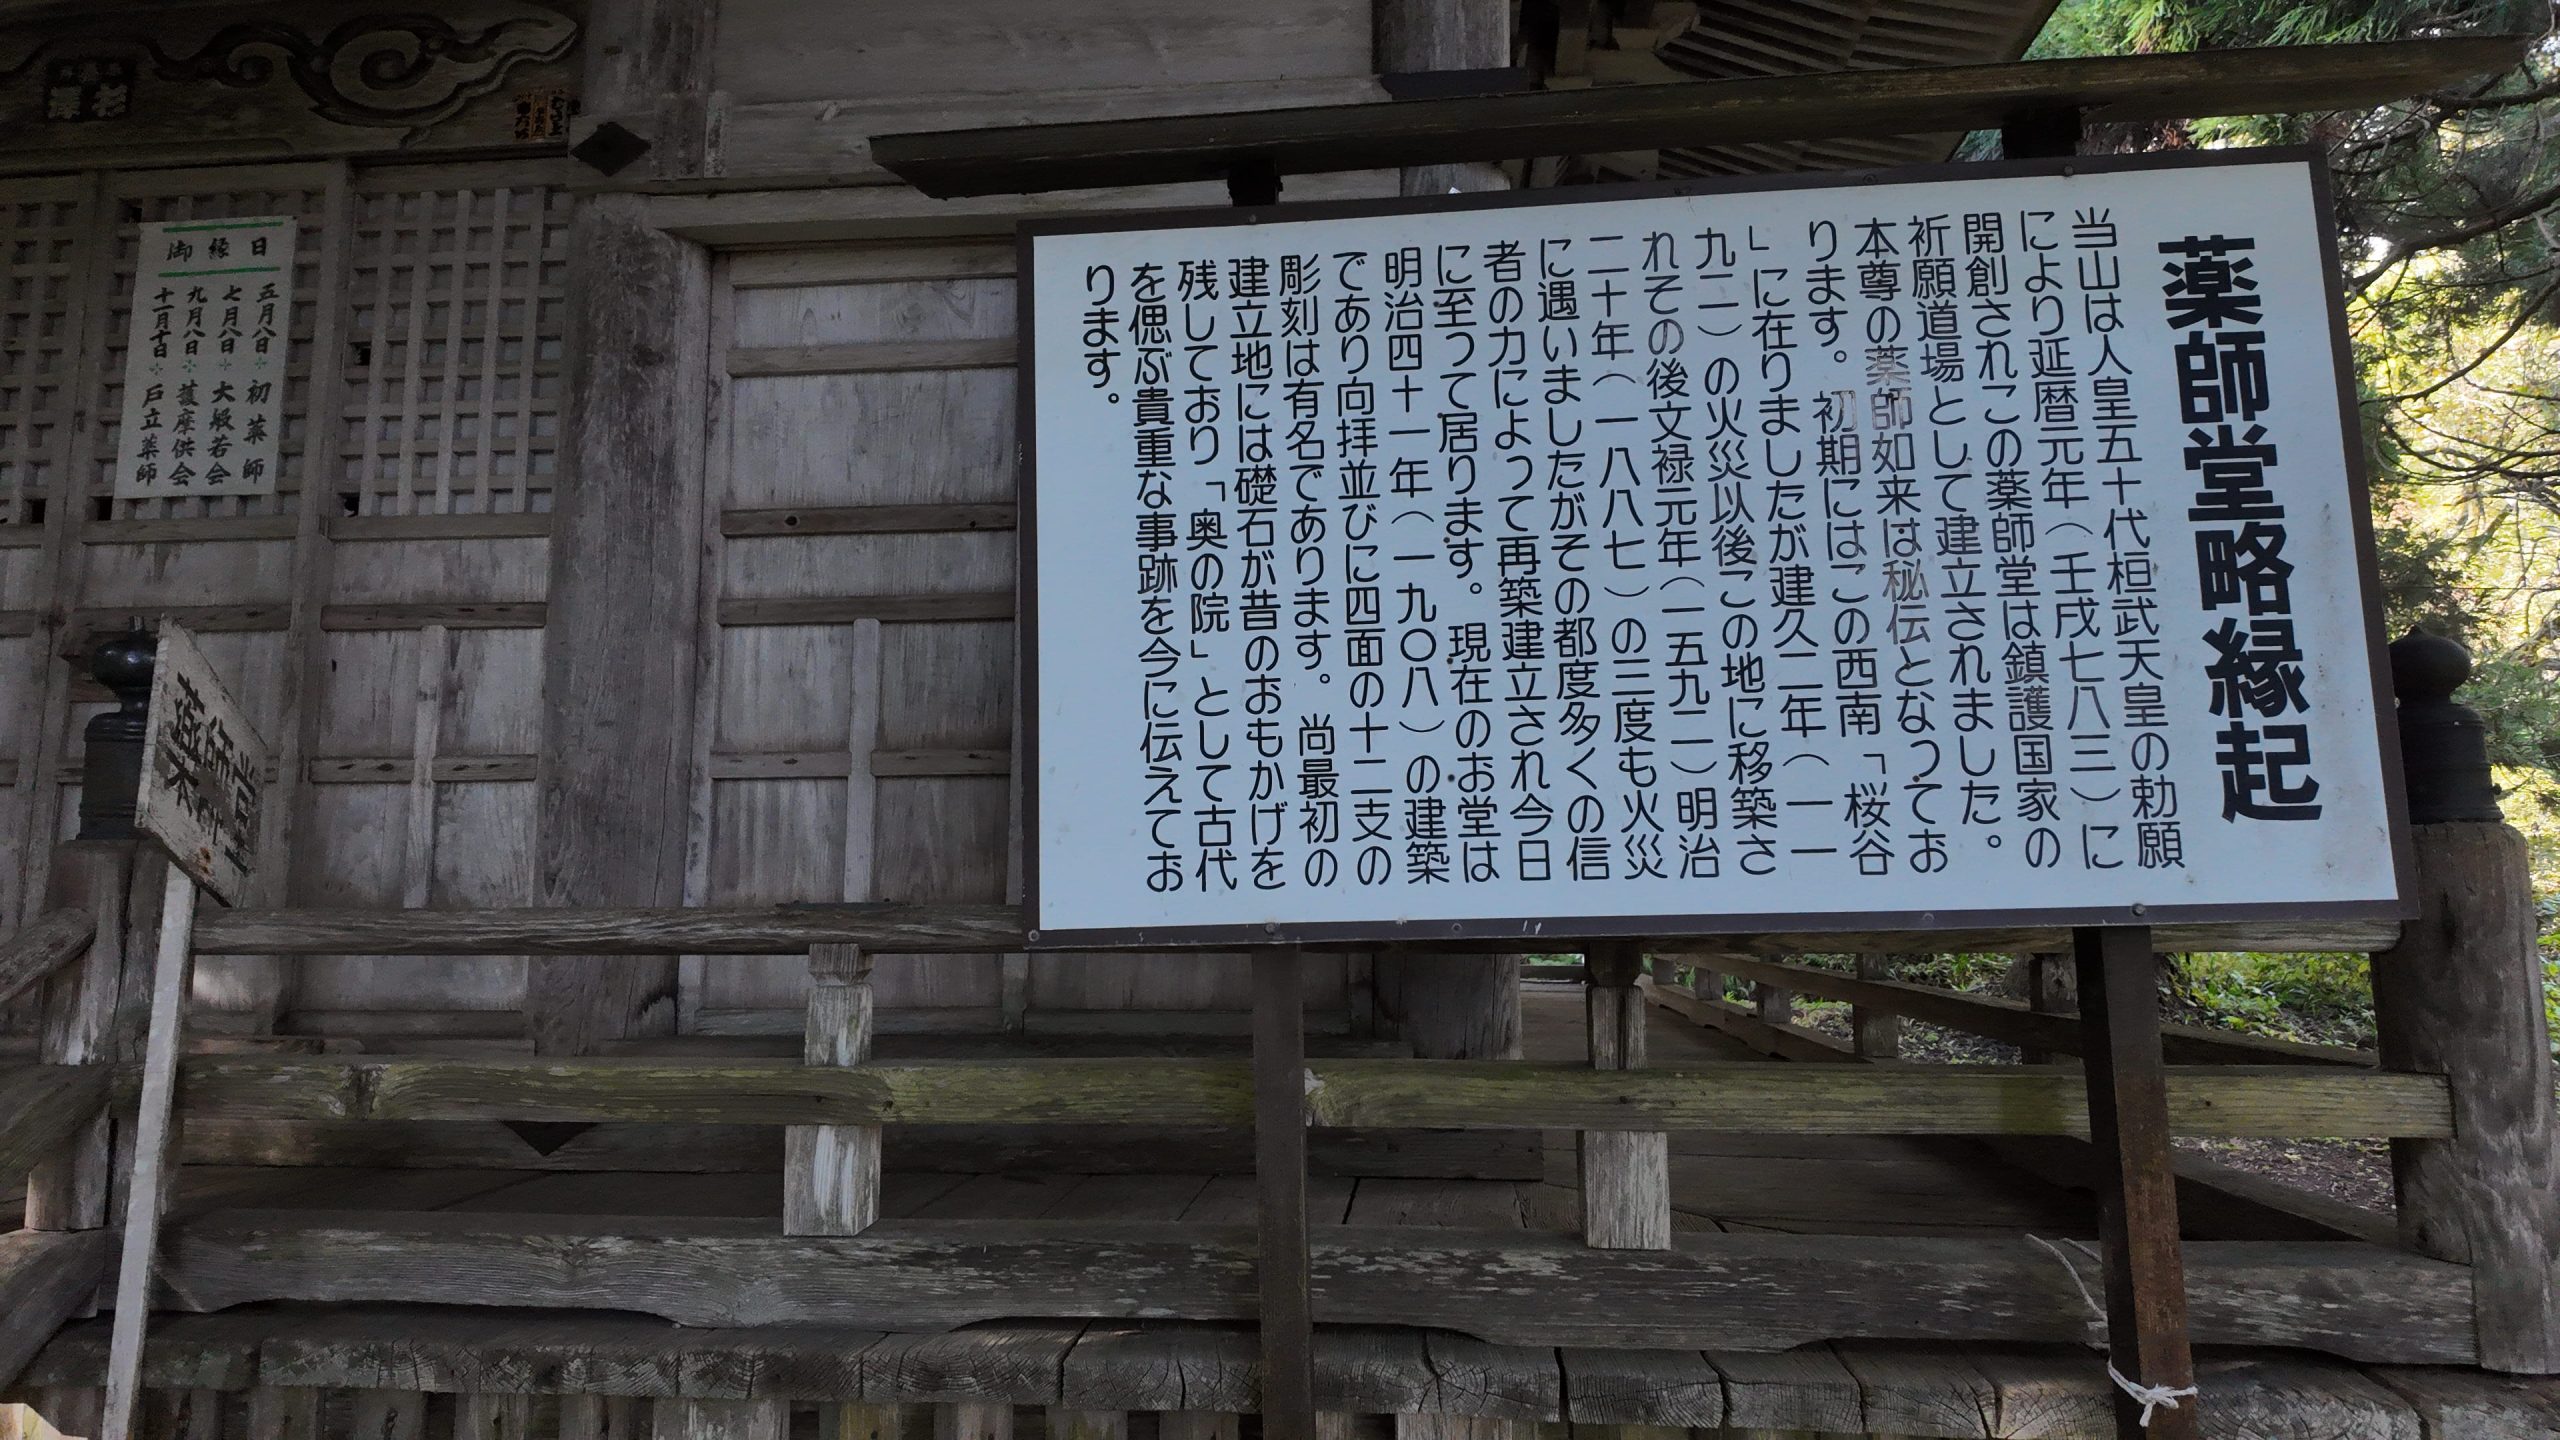 薬師堂略縁起
当山は人皇五十代桓武天皇の勅願
により延暦元年(壬戌七八三)に
開創されこの薬師堂は鎮護国家の
祈願道場として建立されました。
本尊の薬師如来は秘伝となってお
ります。初期にはこの西南「桜谷
」に在りましたが建久二年(一一
九一)の火災以後この地に移築さ
れその後文禄元年(一五九二)明治
二十年(一八八七)の三度も火災
に遇いましたがその都度多くの信
者の力によって再築建立され今日
に至って居ります。現在のお堂は
明治四十一年(一九〇八)の建築
であり向拝並びに四面の十二支の
彫刻は有名であります。尚最初の
建立地には礎石が昔のおもかげを
残しており「奥の院」として古代
を偲ぶ貴重な事跡を今に伝えてお
ります。
御縁日
五月八日 初薬師
七月八日 大般若会
九月八日 護摩供会
十一月十日 戸立薬師
薬師堂